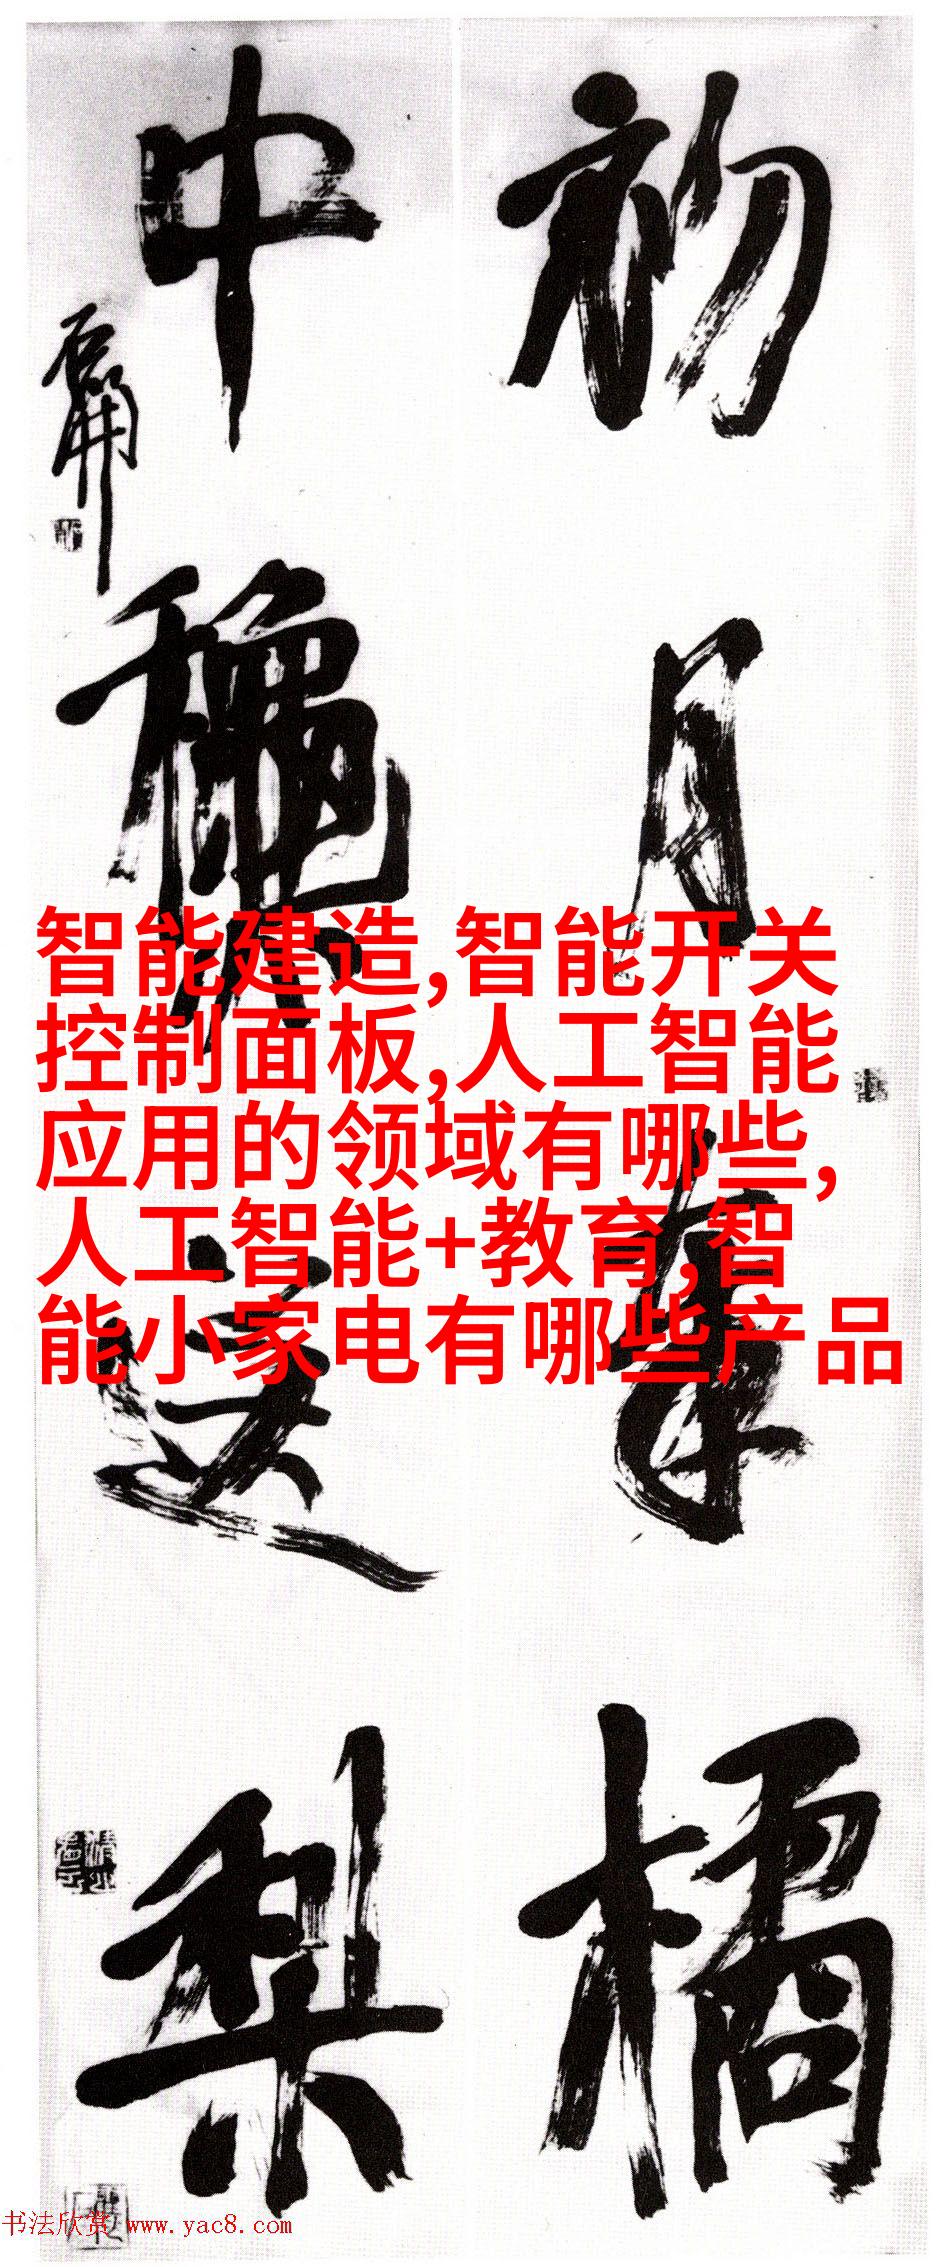 初月橘
中龝送梨
石開
智能建造,智能开关
控制面板,人工智能
应用的领域有哪些,
人工智能+教育,智
能小家电有哪些产品
书法欣赏 www.yac8.com